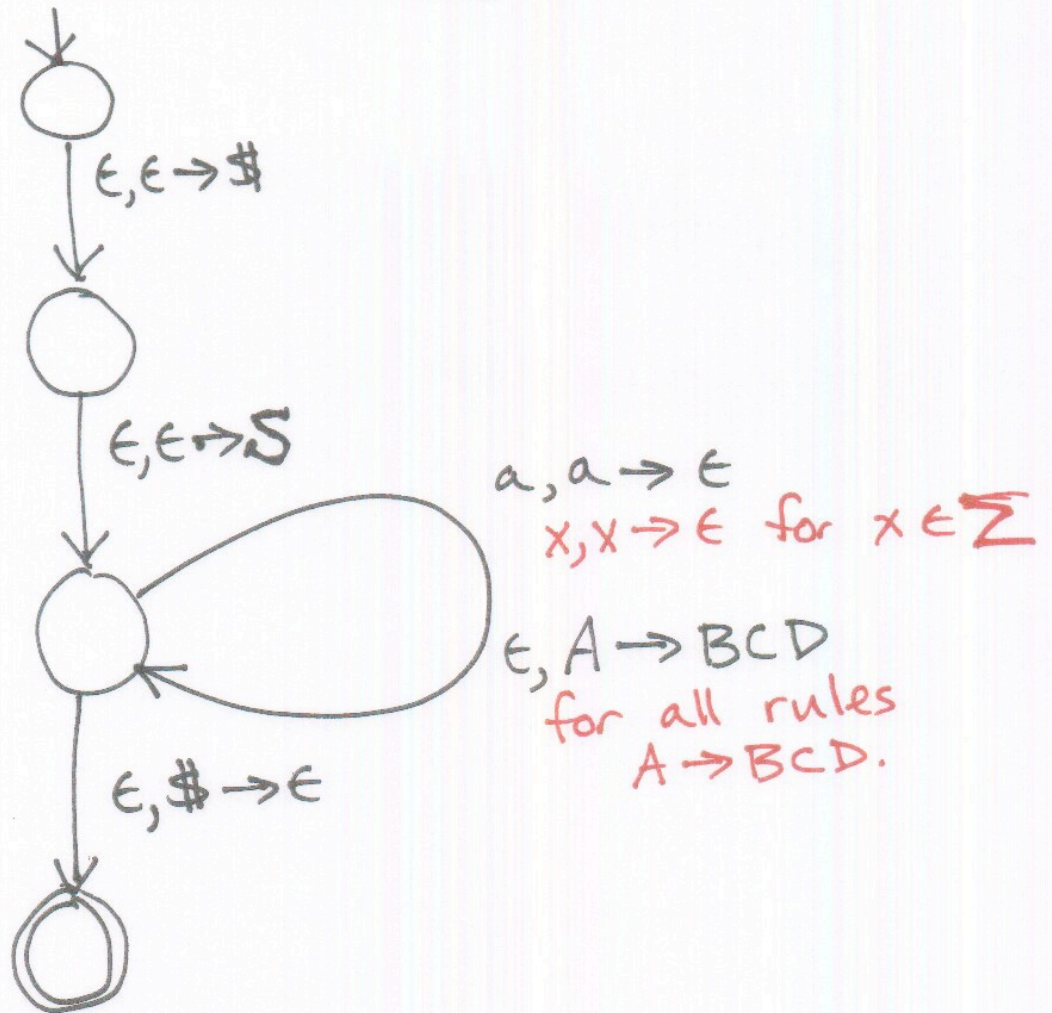 ϵ,ϵ→$
ϵ,ϵ→S
a,a→ϵ
x,x→ϵ for x∈Σ
ϵ,A→BCD
for all rules
A→BCD.
ϵ,$→ϵ